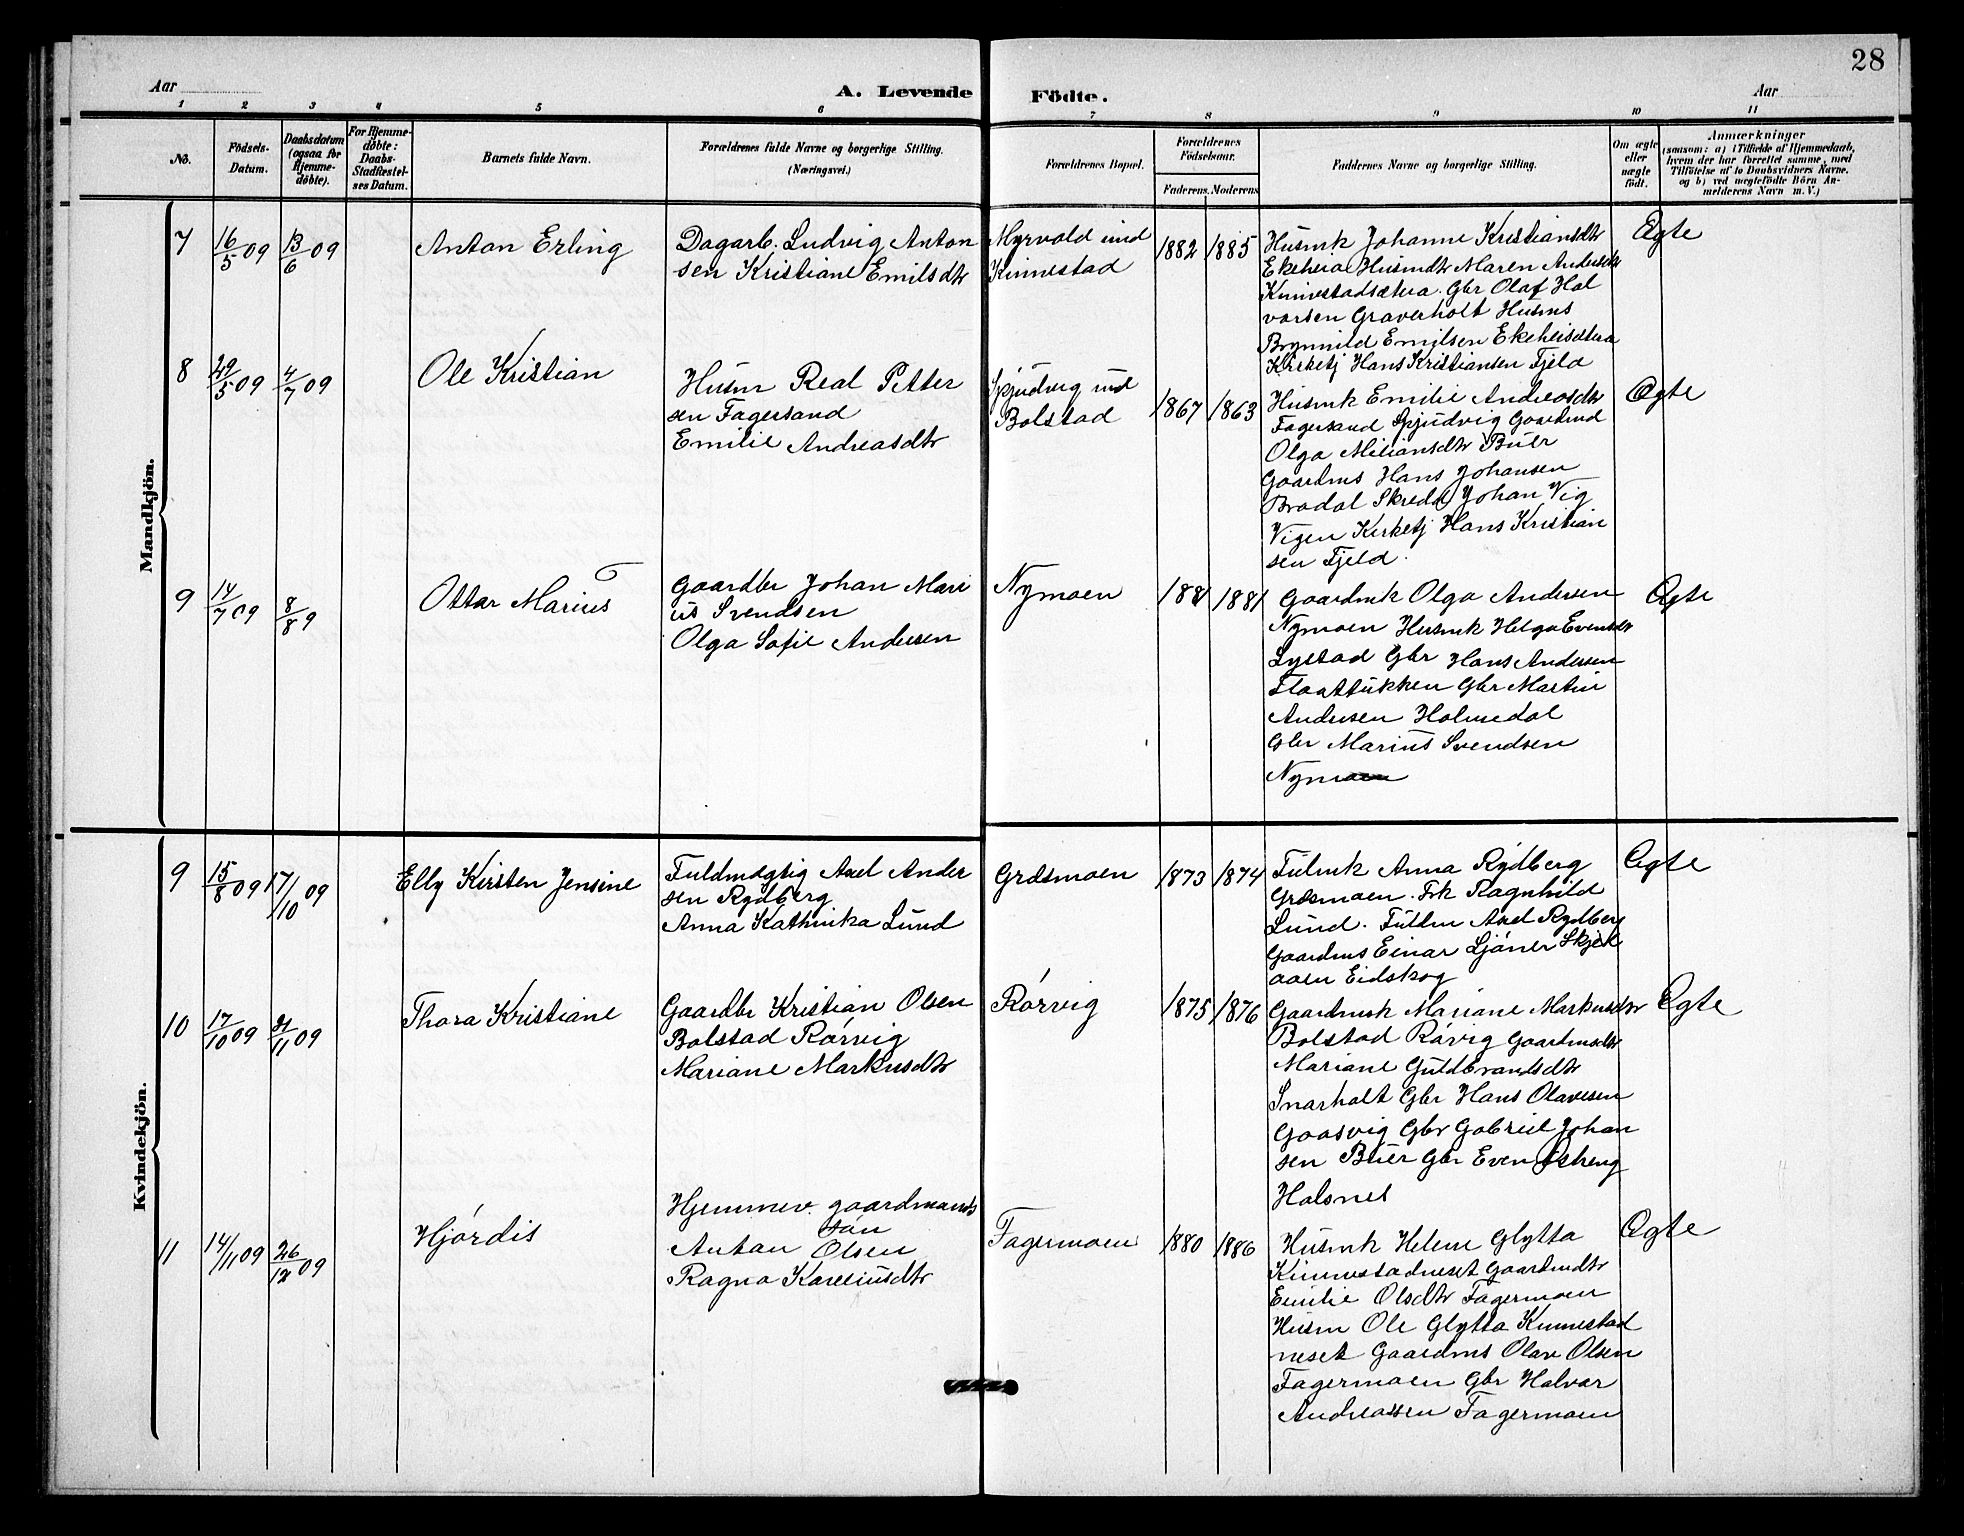 28
Aar
A. Levende Födte.
Aar
1 2 3 4 5 6 7 8 9 10 11
No.
Födsels-
Datum.
Daabsdatum
(ogsaa for
Hjemme-
døbte).
For Hjemme-
døbte:
Daabs-
Stadfæstel-
ses Datum.
Barnets fulde Navn.
Forældrenes fulde Navne og borgerlige Stilling.
(Næringsvei.)
Forældrenes Bopæl.
Forældrenes
Födselsaar.
Faderens. Moderens.
Faddernes Navne og borgerlige Stilling.
Om ægte
eller
uægte
født.
Anmærkninger
(saasom: a) i Tilfælde af Hjemmedaab,
hvem der har forrettet samme, med
Tilføielse af to Daabsvidners Navne.
og b) ved uægtefödte Börn An-
melderens Navn m. V.)
Mandkjön.
7
16/5 09
13/6 09
Anton Erling
Dagarb. Ludvig Anton
sen Kristiane Emilsdtr
Myrvold und
Kinnestad
1882
1885
Husmk Johanne Kristiansdtr
Ekeheia Husmdtr Maren Andersdtr
Kinnestadsætra. Gbr Olaf Hal
vorsen Graverholt Husms
Brynnild Emilsen Ekeheisætera
Kirketj Hans Kristiansen Fjeld
Ægte
8
29/5 09
4/7 09
Ole Kristian
Husm Real Petter
sen Fagersand
Emilie Andreasdtr
Spjudvig und
Bolstad
1867
1863
Husmk Emilie Andreasdtr
Fagersand Spjudvig Gaardmd
Olga Miliansdtr Buer
Gaardms Hans Johansen
Bradal Skredd Johan Vig
Vigen Kirketj Hans Kristian
sen Fjeld.
Ægte
9
14/7 09
8/8 9
Ottar Marius
Gaardbr Johan Mari
us Svendsen
Olga Sofie Andersen
Nymoen
1881
Gaardmk Olga Andersen
Nymoen Husmk Helga Evensdtr
Lystad Gbr Hans Andersen
Flaattukken Gbr Martin
Andersen Holmedal
Gbr Marius Svendsen
Nymoen
Ægte
Kvindekjön.
9
15/8 09
17/10 09
Elly Kirsten Jensine
Fuldmægtig Axel Ander
sen Rydberg
Anna Kathinka Lund
Græsmoen
1873
1874
Fulmk Anna Rydberg
Græsmoen. Frk Ragnhild
Lund. Fuldm Axel Rydberg
Gaardms Einar Ljöner Skjel
aaen Eidskog
Ægte
10
17/10 09
21/11 09
Thora Kristiane
Gaardbr Kristian Olsen
Bolstad Rörvig
Mariane Markusdtr
Rörvig
1875
1876
Gaardmsk Mariane Markusdtr
Bolstad Rövig Gaardmsdtr
Mariane Guldbrandsdtr
Snarholt Gbr Hans Olavesen
Gaasvig Gbr Gabriel Johan
sen Buer Gbr Even Østreng
Halsnes
Ægte
11
14/11 09
26/12 09
Hjördis
Hjemmev. gaardmands
sön
Anton Olsen
Ragna Kareliusdtr
Fagermoen
1880
1886
Husmk Helene Glytta
Kinnestadneset Gaardmdtr
Emilie Olsdtr Fagermoen
Husm Ole Glytta Kinnestad
neset Gaardms Olav Olsen
Fagermoen Gbr Halvor
Andreassen Fagermoen
Ægte